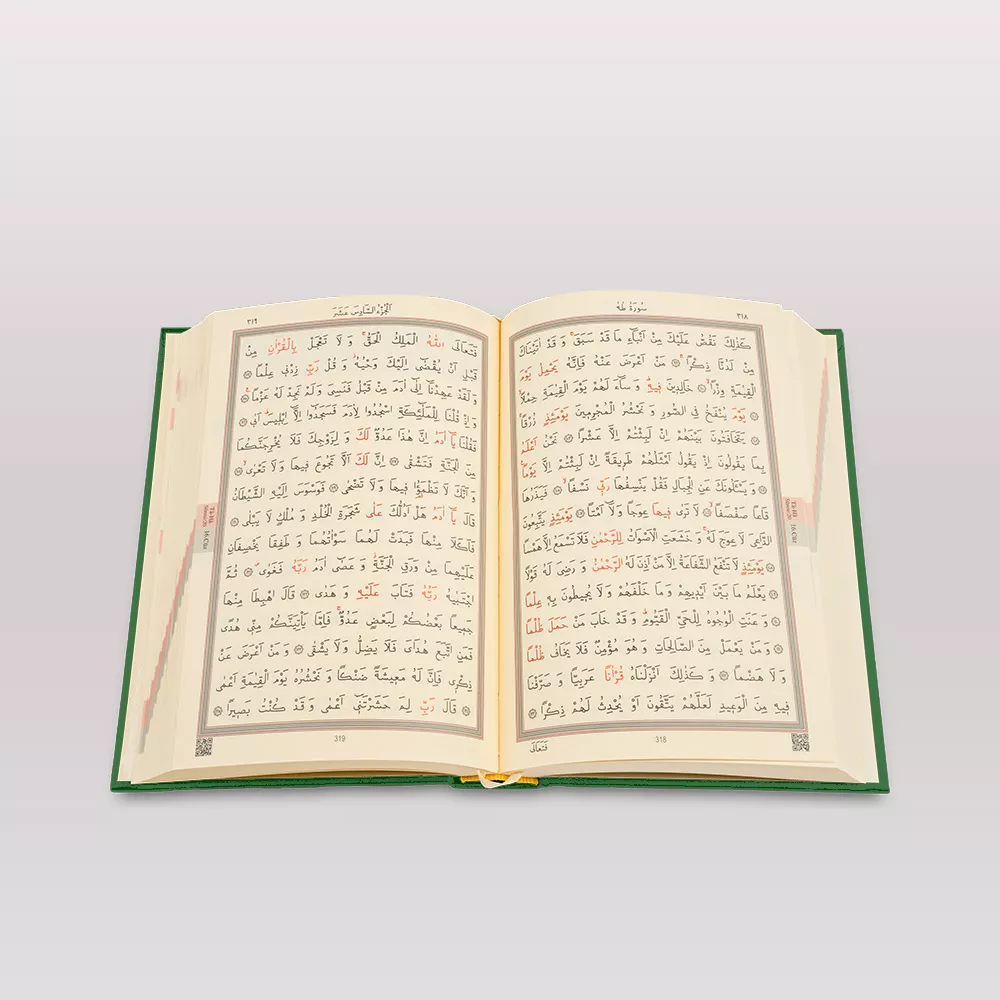 ٣١٨
سُورَةُ طٰهٰ
كَذٰلِكَ نَقُصُّ عَلَيْكَ مِنْ اَنْبَٓاءِ مَا قَدْ سَبَقَۚ وَ قَدْ اٰتَيْنَاكَ
مِنْ لَدُنَّا ذِكْرًاۚ مَنْ اَعْرَضَ عَنْهُ فَاِنَّهُ يَحْمِلُ يَوْمَ
الْقِيٰمَةِ وِزْرًاۙ خَالِدٖينَ فٖيهِ وَ سَٓاءَ لَهُمْ يَوْمَ الْقِيٰمَةِ حِمْلًاۙ
يَوْمَ يُنْفَخُ فِي الصُّورِ وَ نَحْشُرُ الْمُجْرِمٖينَ يَوْمَئِذٍ زُرْقًاۚ
يَتَخَافَتُونَ بَيْنَهُمْ اِنْ لَبِثْتُمْ اِلَّا عَشْرًا نَحْنُ اَعْلَمُ
بِمَا يَقُولُونَ اِذْ يَقُولُ اَمْثَلُهُمْ طَرٖيقَةً اِنْ لَبِثْتُمْ اِلَّا يَوْمًا
وَ يَسْـَٔلُونَكَ عَنِ الْجِبَالِ فَقُلْ يَنْسِفُهَا رَبّٖي نَسْفًاۙ فَيَذَرُهَا
قَاعًا صَفْصَفًاۙ لَا تَرٰى فٖيهَا عِوَجًا وَ لَٓا اَمْتًا يَوْمَئِذٍ يَتَّبِعُونَ
الدَّاعِيَ لَا عِوَجَ لَهُۚ وَ خَشَعَتِ الْاَصْوَاتُ لِلرَّحْمٰنِ فَلَا تَسْمَعُ اِلَّا هَمْسًا
يَوْمَئِذٍ لَا تَنْفَعُ الشَّفَاعَةُ اِلَّا مَنْ اَذِنَ لَهُ الرَّحْمٰنُ وَ رَضِيَ لَهُ قَوْلًا
يَعْلَمُ مَا بَيْنَ اَيْدٖيهِمْ وَ مَا خَلْفَهُمْ وَ لَا يُحٖيطُونَ بِهٖ عِلْمًا
وَ عَنَتِ الْوُجُوهُ لِلْحَيِّ الْقَيُّومِۜ وَ قَدْ خَابَ مَنْ حَمَلَ ظُلْمًا
وَ مَنْ يَعْمَلْ مِنَ الصَّالِحَاتِ وَ هُوَ مُؤْمِنٌ فَلَا يَخَافُ ظُلْمًا
وَ لَا هَضْمًا وَ كَذٰلِكَ اَنْزَلْنَاهُ قُرْاٰنًا عَرَبِيًّا وَ صَرَّفْنَا
فٖيهِ مِنَ الْوَعٖيدِ لَعَلَّهُمْ يَتَّقُونَ اَوْ يُحْدِثُ لَهُمْ ذِكْرًا
فَتَعَالَى
318
16.Cüz
٣١٩
اَلْجُزْءُ السَّادِسَ عَشَرَ
فَتَعَالَى اللّٰهُ الْمَلِكُ الْحَقُّۚ وَ لَا تَعْجَلْ بِالْقُرْاٰنِ مِنْ
قَبْلِ اَنْ يُقْضٰٓى اِلَيْكَ وَحْيُهُۘ وَ قُلْ رَبِّ زِدْنٖي عِلْمًا
وَ لَقَدْ عَهِدْنَٓا اِلٰٓى اٰدَمَ مِنْ قَبْلُ فَنَسِيَ وَ لَمْ نَجِدْ لَهُ عَزْمًا
وَ اِذْ قُلْنَا لِلْمَلٰٓئِكَةِ اسْجُدُوا لِاٰدَمَ فَسَجَدُٓوا اِلَّٓا اِبْلٖيسَۜ اَبٰى
فَقُلْنَا يَٓا اٰدَمُ اِنَّ هٰذَا عَدُوٌّ لَكَ وَ لِزَوْجِكَ فَلَا يُخْرِجَنَّكُمَا
مِنَ الْجَنَّةِ فَتَشْقٰى اِنَّ لَكَ اَلَّا تَجُوعَ فٖيهَا وَ لَا تَعْرٰىۙ
وَ اَنَّكَ لَا تَظْمَؤُ۬ا فٖيهَا وَ لَا تَضْحٰى فَوَسْوَسَ اِلَيْهِ الشَّيْطَانُ
قَالَ يَٓا اٰدَمُ هَلْ اَدُلُّكَ عَلٰى شَجَرَةِ الْخُلْدِ وَ مُلْكٍ لَا يَبْلٰى
فَاَكَلَا مِنْهَا فَبَدَتْ لَهُمَا سَوْاٰتُهُمَا وَ طَفِقَا يَخْصِفَانِ
عَلَيْهِمَا مِنْ وَرَقِ الْجَنَّةِۘ وَ عَصٰٓى اٰدَمُ رَبَّهُ فَغَوٰىۖ ثُمَّ
اجْتَبٰيهُ رَبُّهُ فَتَابَ عَلَيْهِ وَ هَدٰى قَالَ اهْبِطَا مِنْهَا
جَمٖيعًا بَعْضُكُمْ لِبَعْضٍ عَدُوٌّۚ فَاِمَّا يَاْتِيَنَّكُمْ مِنّٖي هُدًى
فَمَنِ اتَّبَعَ هُدَايَ فَلَا يَضِلُّ وَ لَا يَشْقٰى وَ مَنْ اَعْرَضَ عَنْ
ذِكْرٖي فَاِنَّ لَهُ مَعٖيشَةً ضَنْكًا وَ نَحْشُرُهُ يَوْمَ الْقِيٰمَةِ اَعْمٰى
قَالَ رَبِّ لِمَ حَشَرْتَنٖٓي اَعْمٰى وَ قَدْ كُنْتُ بَصٖيرًا
319
16.Cüz